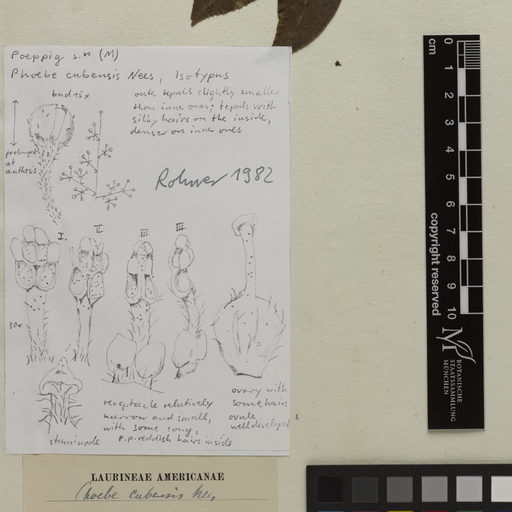 Poeppig s.n. (M)
Phoebe cubensis Nees, Isotypus
bud 15x
outer tepals slightly smaller
than inner ones; tepals with
silky hairs on the inside,
denser on inner ones
prolonged
at
anthesis
Rohwer 1982
I.
II
III
III
30x
receptacle relatively
narrow and small,
with some long,
p.p. reddish hairs inside
ovary with
some hairs
ovule
well developed
staminode
LAURINEAE AMERICANAE
Phoebe cubensis Nees
cm
0 1 2 3 4 5 6 7 8 9 10
copyright reserved
M
BOTANISCHE
STAATSSAMMLUNG
MÜNCHEN